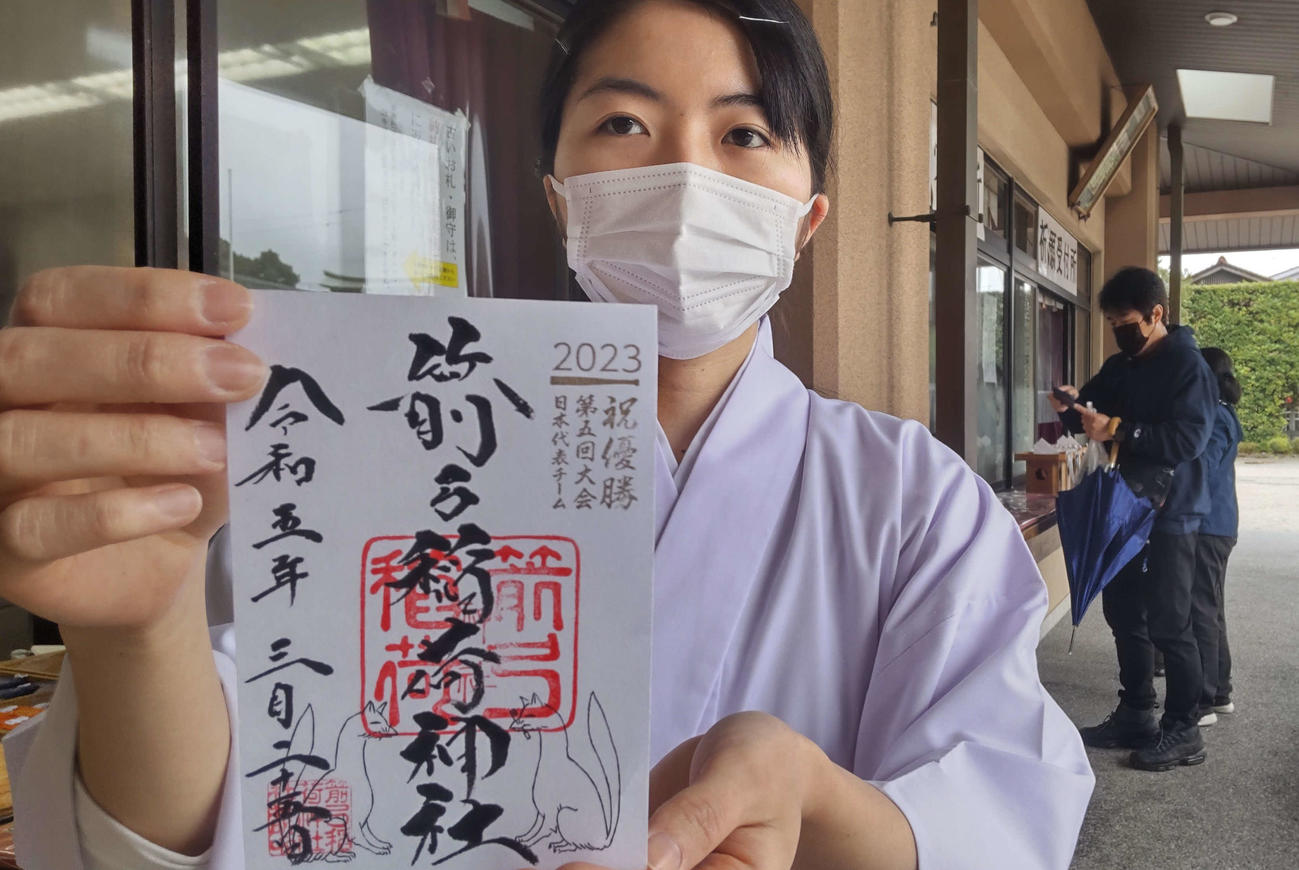 2023
祝優勝
第五回大会
日本代表チーム
箭弓稲荷神社
令和五年 三月二十五日
箭弓
稲荷
古いお札・御守は、
祈願受付所